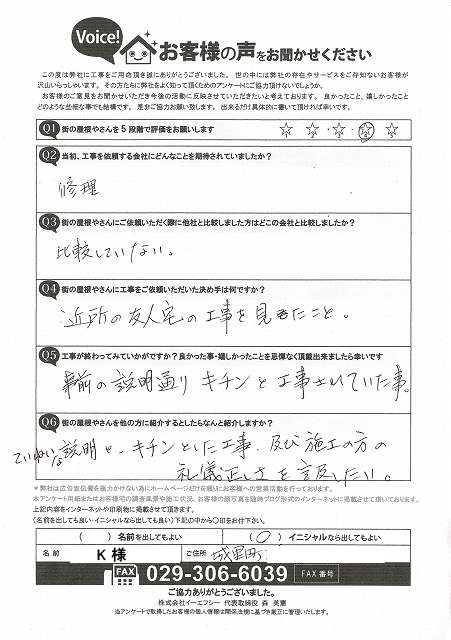 Voice!
お客様の声をお聞かせください
この度は弊社に工事をご用命頂き誠にありがとうございました。世の中には弊社の存在やサービスをご存知ないお客様が
沢山いらっしゃいます。その方たちに弊社をよく知って頂くためのアンケートにご協力頂けないでしょうか。
お客様のご意見をお聞かせいただき今後の活動に反映させていただきたいと考えております。良かったこと、嬉しかったこと
どのような些細な事でも結構です。是非ご協力お願い致します。出来るだけ具体的に書いて頂ければ幸いです。
Q1 街の屋根やさんを5段階で評価をお願いします ☆ ☆ ・☆ ・☆ ・☆
Q2 当初、工事を依頼する会社にどんなことを期待されていましたか?
修理
Q3 街の屋根やさんにご依頼いただく際に他社と比較しました方はどこの会社と比較しましたか?
比較していない。
Q4 街の屋根やさんに工事をご依頼いただいた決め手は何ですか?
近所の友人宅の工事を見たこと。
Q5 工事が終わってみていかがですか?良かった事・嬉しかったことを忌憚なく頂戴出来ましたら幸いです
事前の説明通りキチンと工事されていた事。
Q6 街の屋根やさんを他の方に紹介するとしたらなんと紹介しますか?
ていねいな説明と、キチンとした工事、及び施工の方の
礼儀正しさを言及したい。
＊弊社は広告宣伝費を極力かけない為にホームページだけを頼りにお客様への営業活動を行っております。
本アンケート用紙またはお客様宅の調査風景や施工状況、お客様の顔写真を随時ブログ形式のインターネットに掲載させて頂いております。
上記内容をインターネットや印刷物に掲載させて頂きます。
(名前を出しても良い・イニシャルなら出しても良い)下記の中から〇印をお付け下さい。
( )名前を出してもよい (〇)イニシャルなら出してもよい
名前 K様 ご住所 城里町
FAX 029-306-6039 FAX番号
ご協力ありがとうございました。
株式会社イーエフシー 代表取締役 森 英憲
当アンケートで取得したお客様の個人情報は関係法規に基づき厳正に管理いたします。